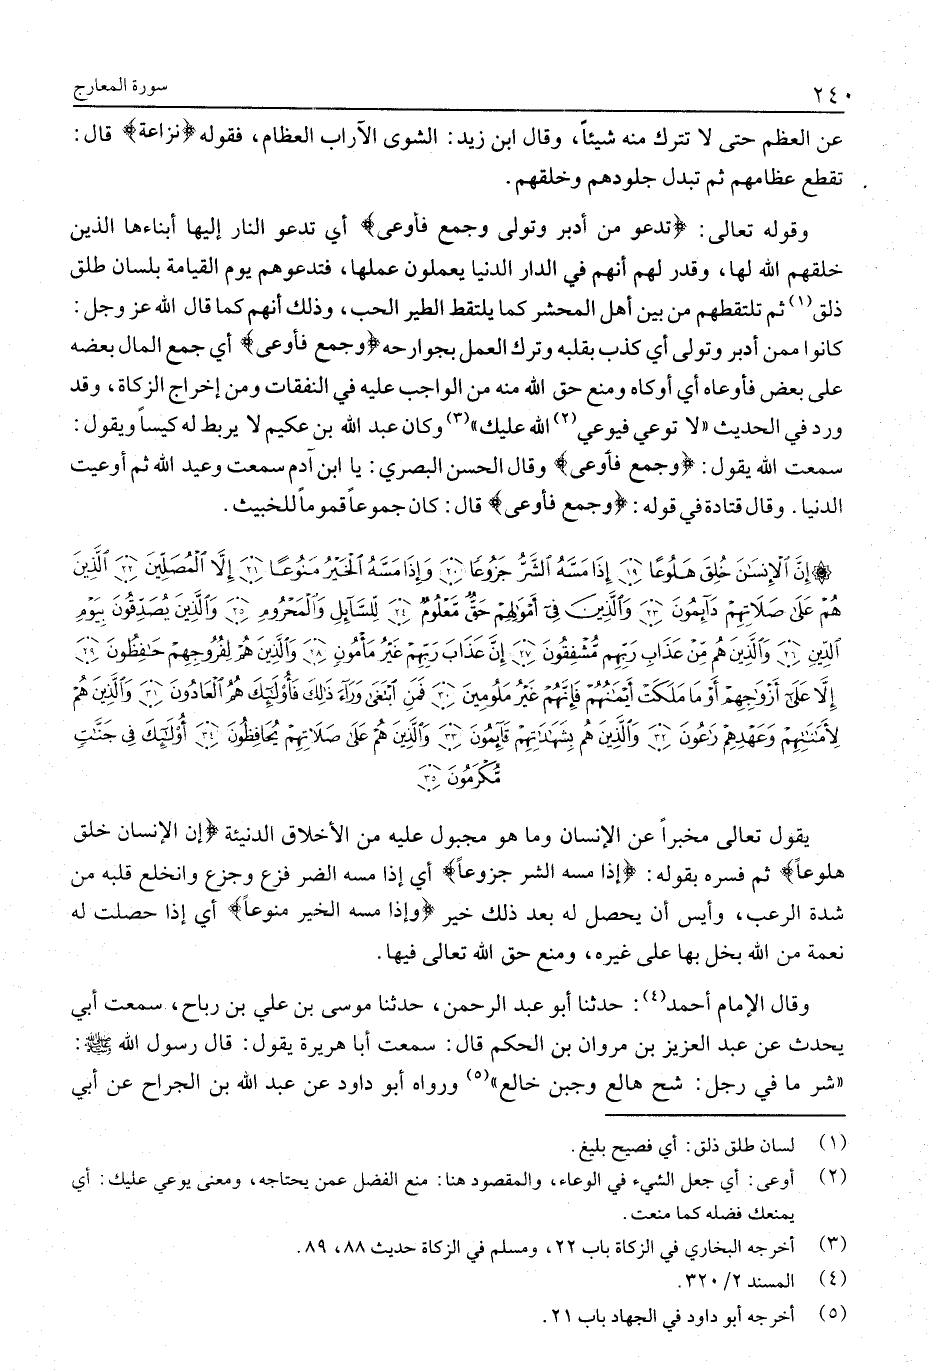 ٢٤٠ سورة المعارج
عن العظم حتى لا تترك منه شيئاً، وقال ابن زيد: الشوى الآراب العظام، فقوله ﴿نزاعة﴾ قال:
تقطع عظامهم ثم تبدل جلودهم وخلقهم.
وقوله تعالى: ﴿تدعو من أدبر وتولى وجمع فأوعى﴾ أي تدعو النار إليها أبناءها الذين
خلقهم الله لها، وقدر لهم أنهم في الدار الدنيا يعملون عملها، فتدعوهم يوم القيامة بلسان طلق
ذلق(١) ثم تلتقطهم من بين أهل المحشر كما يلتقط الطير الحب، وذلك أنهم كما قال الله عز وجل:
كانوا ممن أدبر وتولى أي كذب بقلبه وترك العمل بجوارحه ﴿وجمع فأوعى﴾ أي جمع المال بعضه
على بعض فأوعاه أي أوكاه ومنع حق الله منه من الواجب عليه في النفقات ومن إخراج الزكاة، وقد
ورد في الحديث «لا توعي فيوعي(٢) الله عليك»(٣) وكان عبد الله بن عكيم لا يربط له كيساً ويقول:
سمعت الله يقول: ﴿وجمع فأوعى﴾ وقال الحسن البصري: يا ابن آدم سمعت وعيد الله ثم أوعيت
الدنيا. وقال قتادة في قوله: ﴿وجمع فأوعى﴾ قال: كان جموعاً قموماً للخبيث.
۞ إِنَّ ٱلْإِنسَٰنَ خُلِقَ هَلُوعًا ١٩ إِذَا مَسَّهُ ٱلشَّرُّ جَزُوعًا ٢٠ وَإِذَا مَسَّهُ ٱلْخَيْرُ مَنُوعًا ٢١ إِلَّا ٱلْمُصَلِّينَ ٢٢ ٱلَّذِينَ
هُمْ عَلَىٰ صَلَاتِهِمْ دَآئِمُونَ ٢٣ وَٱلَّذِينَ فِىٓ أَمْوَٰلِهِمْ حَقٌّ مَّعْلُومٌ ٢٤ لِّلسَّآئِلِ وَٱلْمَحْرُومِ ٢٥ وَٱلَّذِينَ يُصَدِّقُونَ بِيَوْمِ
ٱلدِّينِ ٢٦ وَٱلَّذِينَ هُم مِّنْ عَذَابِ رَبِّهِم مُّشْفِقُونَ ٢٧ إِنَّ عَذَابَ رَبِّهِمْ غَيْرُ مَأْمُونٍ ٢٨ وَٱلَّذِينَ هُمْ لِفُرُوجِهِمْ حَٰفِظُونَ ٢٩
إِلَّا عَلَىٰٓ أَزْوَٰجِهِمْ أَوْ مَا مَلَكَتْ أَيْمَٰنُهُمْ فَإِنَّهُمْ غَيْرُ مَلُومِينَ ٣٠ فَمَنِ ٱبْتَغَىٰ وَرَآءَ ذَٰلِكَ فَأُو۟لَٰٓئِكَ هُمُ ٱلْعَادُونَ ٣١ وَٱلَّذِينَ هُمْ
لِأَمَٰنَٰتِهِمْ وَعَهْدِهِمْ رَٰعُونَ ٣٢ وَٱلَّذِينَ هُم بِشَهَٰدَٰتِهِمْ قَآئِمُونَ ٣٣ وَٱلَّذِينَ هُمْ عَلَىٰ صَلَاتِهِمْ يُحَافِظُونَ ٣٤ أُو۟لَٰٓئِكَ فِى جَنَّٰتٍ
مُّكْرَمُونَ ٣٥
يقول تعالى مخبراً عن الإنسان وما هو مجبول عليه من الأخلاق الدنيئة ﴿إن الإنسان خلق
هلوعاً﴾ ثم فسره بقوله: ﴿إذا مسه الشر جزوعاً﴾ أي إذا مسه الضر فزع وجزع وانخلع قلبه من
شدة الرعب، وأيس أن يحصل له بعد ذلك خير ﴿وإذا مسه الخير منوعاً﴾ أي إذا حصلت له
نعمة من الله بخل بها على غيره، ومنع حق الله تعالى فيها.
وقال الإمام أحمد(٤): حدثنا أبو عبد الرحمن، حدثنا موسى بن علي بن رباح، سمعت أبي
يحدث عن عبد العزيز بن مروان بن الحكم قال: سمعت أبا هريرة يقول: قال رسول الله ﷺ:
«شر ما في رجل: شح هالع وجبن خالع»(٥) ورواه أبو داود عن عبد الله بن الجراح عن أبي
(١) لسان طلق ذلق: أي فصيح بليغ.
(٢) أوعى: أي جعل الشيء في الوعاء، والمقصود هنا: منع الفضل عمن يحتاجه، ومعنى يوعي عليك: أي
يمنعك فضله كما منعت.
(٣) أخرجه البخاري في الزكاة باب ٢٢، ومسلم في الزكاة حديث ٨٨، ٨٩.
(٤) المسند ٢/ ٣٢٠.
(٥) أخرجه أبو داود في الجهاد باب ٢١.